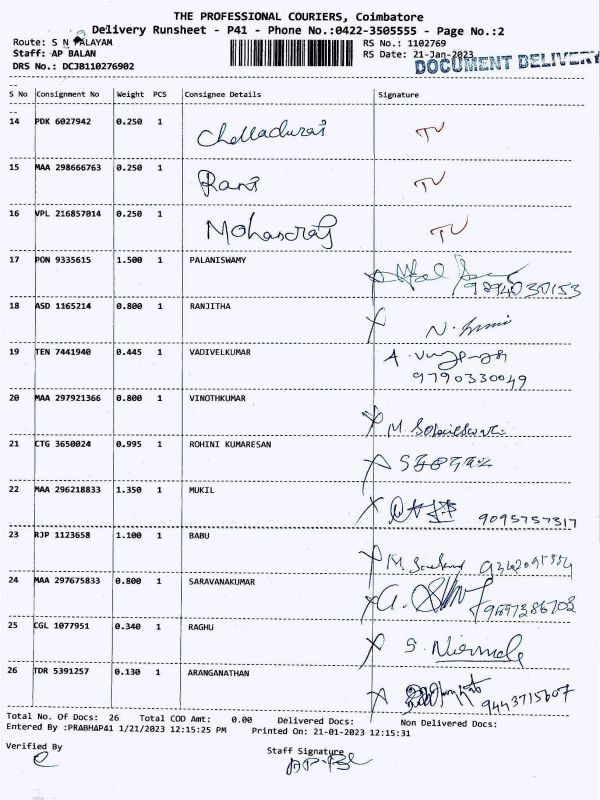 THE PROFESSIONAL COURIERS, Coimbatore
Delivery Runsheet - P41 - Phone No.:0422-3505555 - Page No.:2
Route: S N PALAYAM RS No.: 1102769
Staff: AP BALAN RS Date: 21-Jan-2023
DRS No.: DCJB110276902 DOCUMENT DELIVERY
S No Consignment No Weight PCS Consignee Details Signature
14 PDK 6027942 0.250 1 Chelladurai
15 MAA 298666763 0.250 1 Rani
16 VPL 216857014 0.250 1 Mohanraj
17 PON 9335615 1.500 1 PALANISWAMY
9894030153
18 ASD 1165214 0.800 1 RANJITHA
19 TEN 7441940 0.445 1 VADIVELKUMAR
9790330049
20 MAA 297921366 0.800 1 VINOTHKUMAR
21 CTG 3650024 0.995 1 ROHINI KUMARESAN
22 MAA 296218833 1.350 1 MUKIL
9095757317
23 RJP 1123658 1.100 1 BABU
24 MAA 297675833 0.800 1 SARAVANAKUMAR
25 CGL 1077951 0.340 1 RAGHU S. Nirmala
26 TDR 5391257 0.130 1 ARANGANATHAN
9443715607
Total No. Of Docs: 26 Total COD Amt: 0.00 Delivered Docs: Non Delivered Docs:
Entered By :PRABHAP41 1/21/2023 12:15:25 PM Printed On: 21-01-2023 12:15:31
Verified By Staff Signature